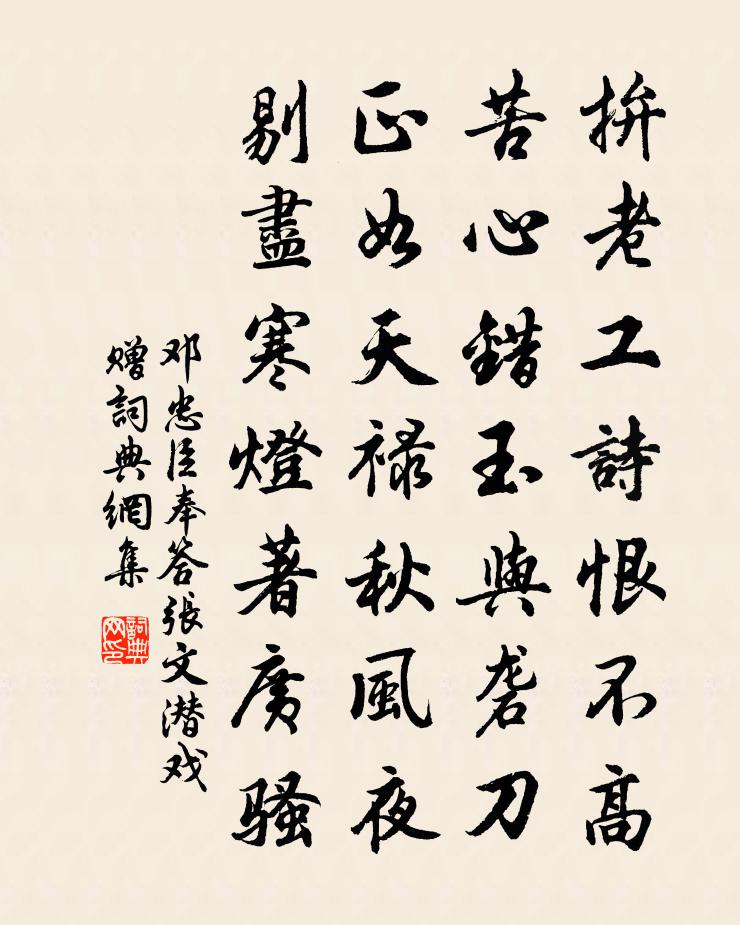 拚老工詩恨不高
苦心錯玉與砻刀
正如天禄秋風夜
剔盡寒燈著廣騷
邓忠臣奉答張文潜戏
赠詞典網集
詞典
网印